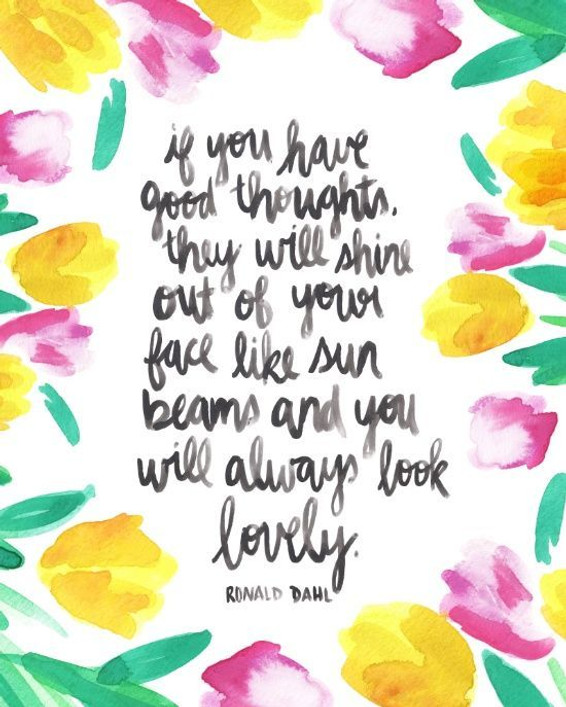 if you have
good thoughts,
they will shine
out of your
face like sun
beams and you
will always look
lovely.
RONALD DAHL